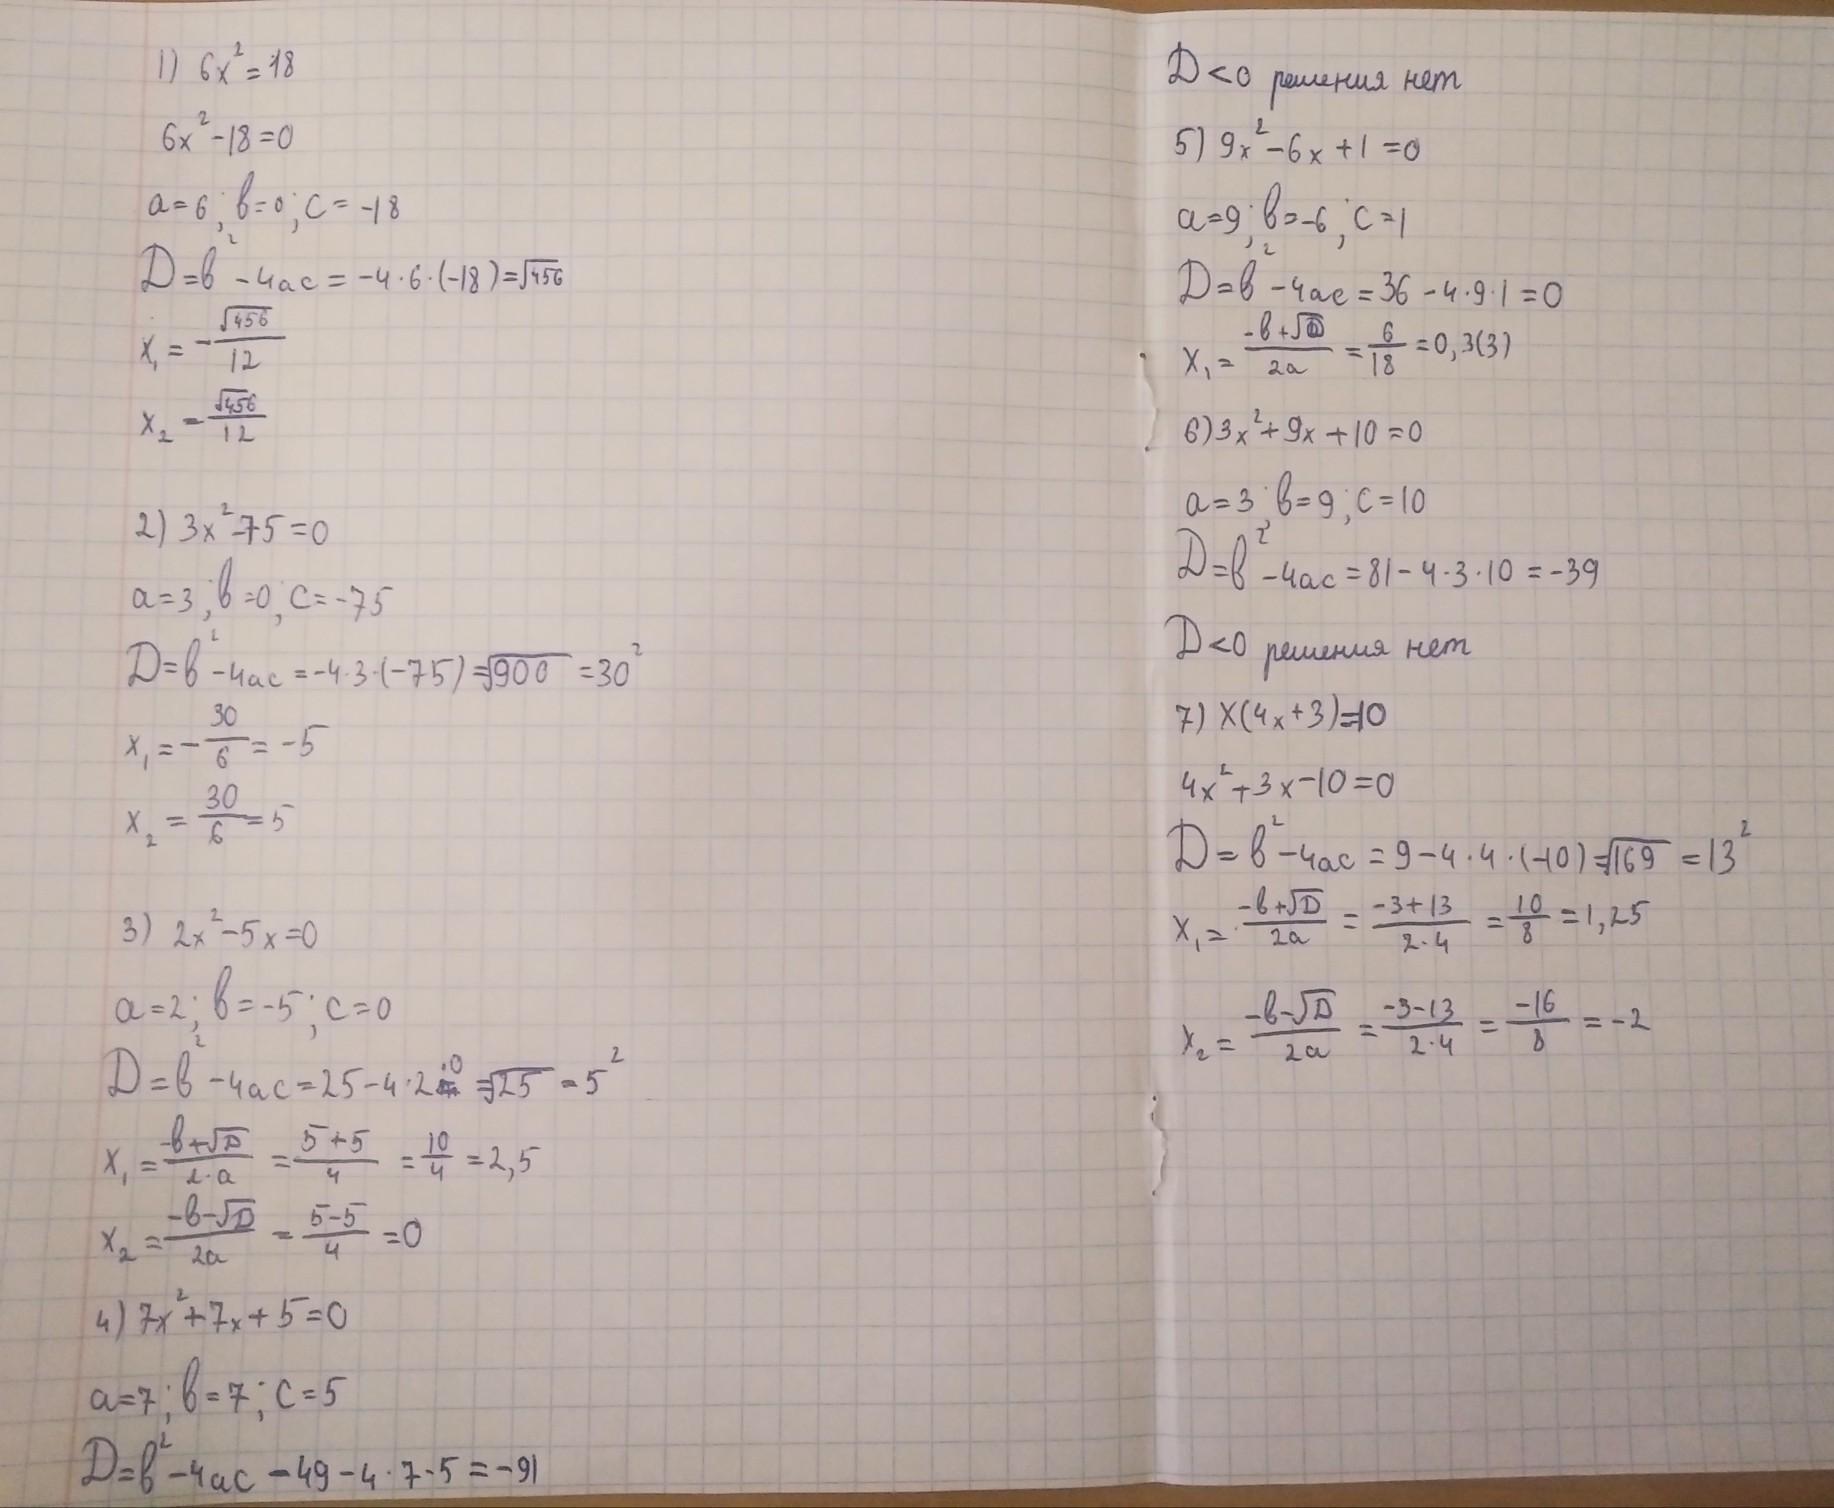 1) 6x² = 18
6x² - 18 = 0
a = 6; b = 0; c = -18
D = b² - 4ac = -4·6·(-18) = √456
x₁ = - √456 / 12
x₂ = √456 / 12
2) 3x² - 75 = 0
a = 3; b = 0; c = -75
D = b² - 4ac = -4·3·(-75) = √900 = 30²
x₁ = - 30/6 = -5
x₂ = 30/6 = 5
3) 2x² - 5x = 0
a = 2; b = -5; c = 0
D = b² - 4ac = 25 - 4·2·0 = √25 = 5²
x₁ = (-b+√D)/(2·a) = (5+5)/4 = 10/4 = 2,5
x₂ = (-b-√D)/(2a) = (5-5)/4 = 0
4) 7x² + 7x + 5 = 0
a = 7; b = 7; c = 5
D = b² - 4ac = 49 - 4·7·5 = -91
D < 0 решения нет
5) 9x² - 6x + 1 = 0
a = 9; b = -6; c = 1
D = b² - 4ac = 36 - 4·9·1 = 0
x₁ = (-b+√D)/(2a) = 6/18 = 0,3(3)
6) 3x² + 9x + 10 = 0
a = 3; b = 9; c = 10
D = b² - 4ac = 81 - 4·3·10 = -39
D < 0 решения нет
7) x(4x + 3) = 10
4x² + 3x - 10 = 0
D = b² - 4ac = 9 - 4·4·(-10) = √169 = 13²
x₁ = (-b+√D)/(2a) = (-3+13)/(2·4) = 10/8 = 1,25
x₂ = (-b-√D)/(2a) = (-3-13)/(2·4) = -16/8 = -2